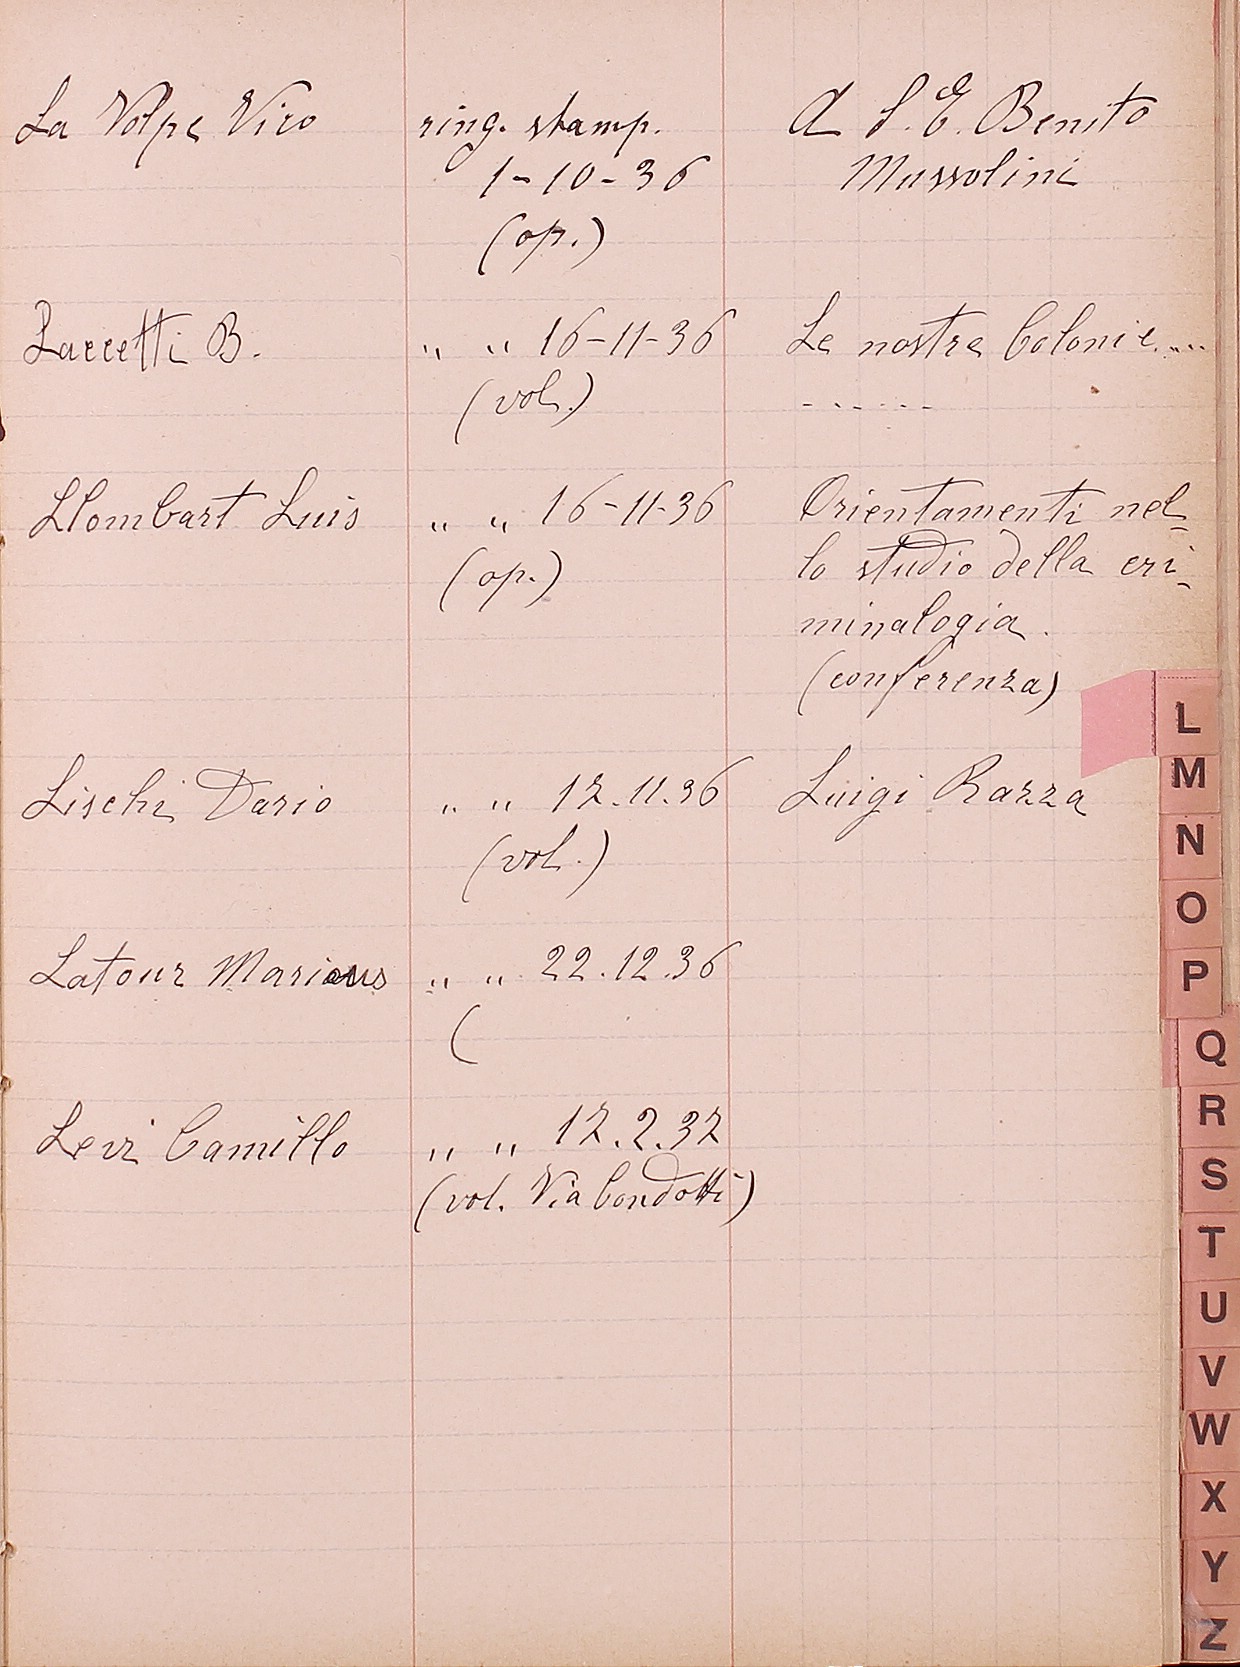 La Volpe Vico ring. stamp. A S. E. Benito
1-10-36 Mussolini
(op.)
Laccetti B. " " 16-11-36 Le nostre Colonie.....
(vol.) - - - - - -
Llombart Luis " " 16-11-36 Orientamenti nel=
(op.) lo studio della cri=
minalogia.
(conferenza)
Lischi Dario " " 17.11.36 Luigi Razza
(vol.)
Latour Marious " " 22.12.36
(
Levi Camillo " " 17.2.37
(vol. Via Condotti)
L
M
N
O
P
Q
R
S
T
U
V
W
X
Y
Z